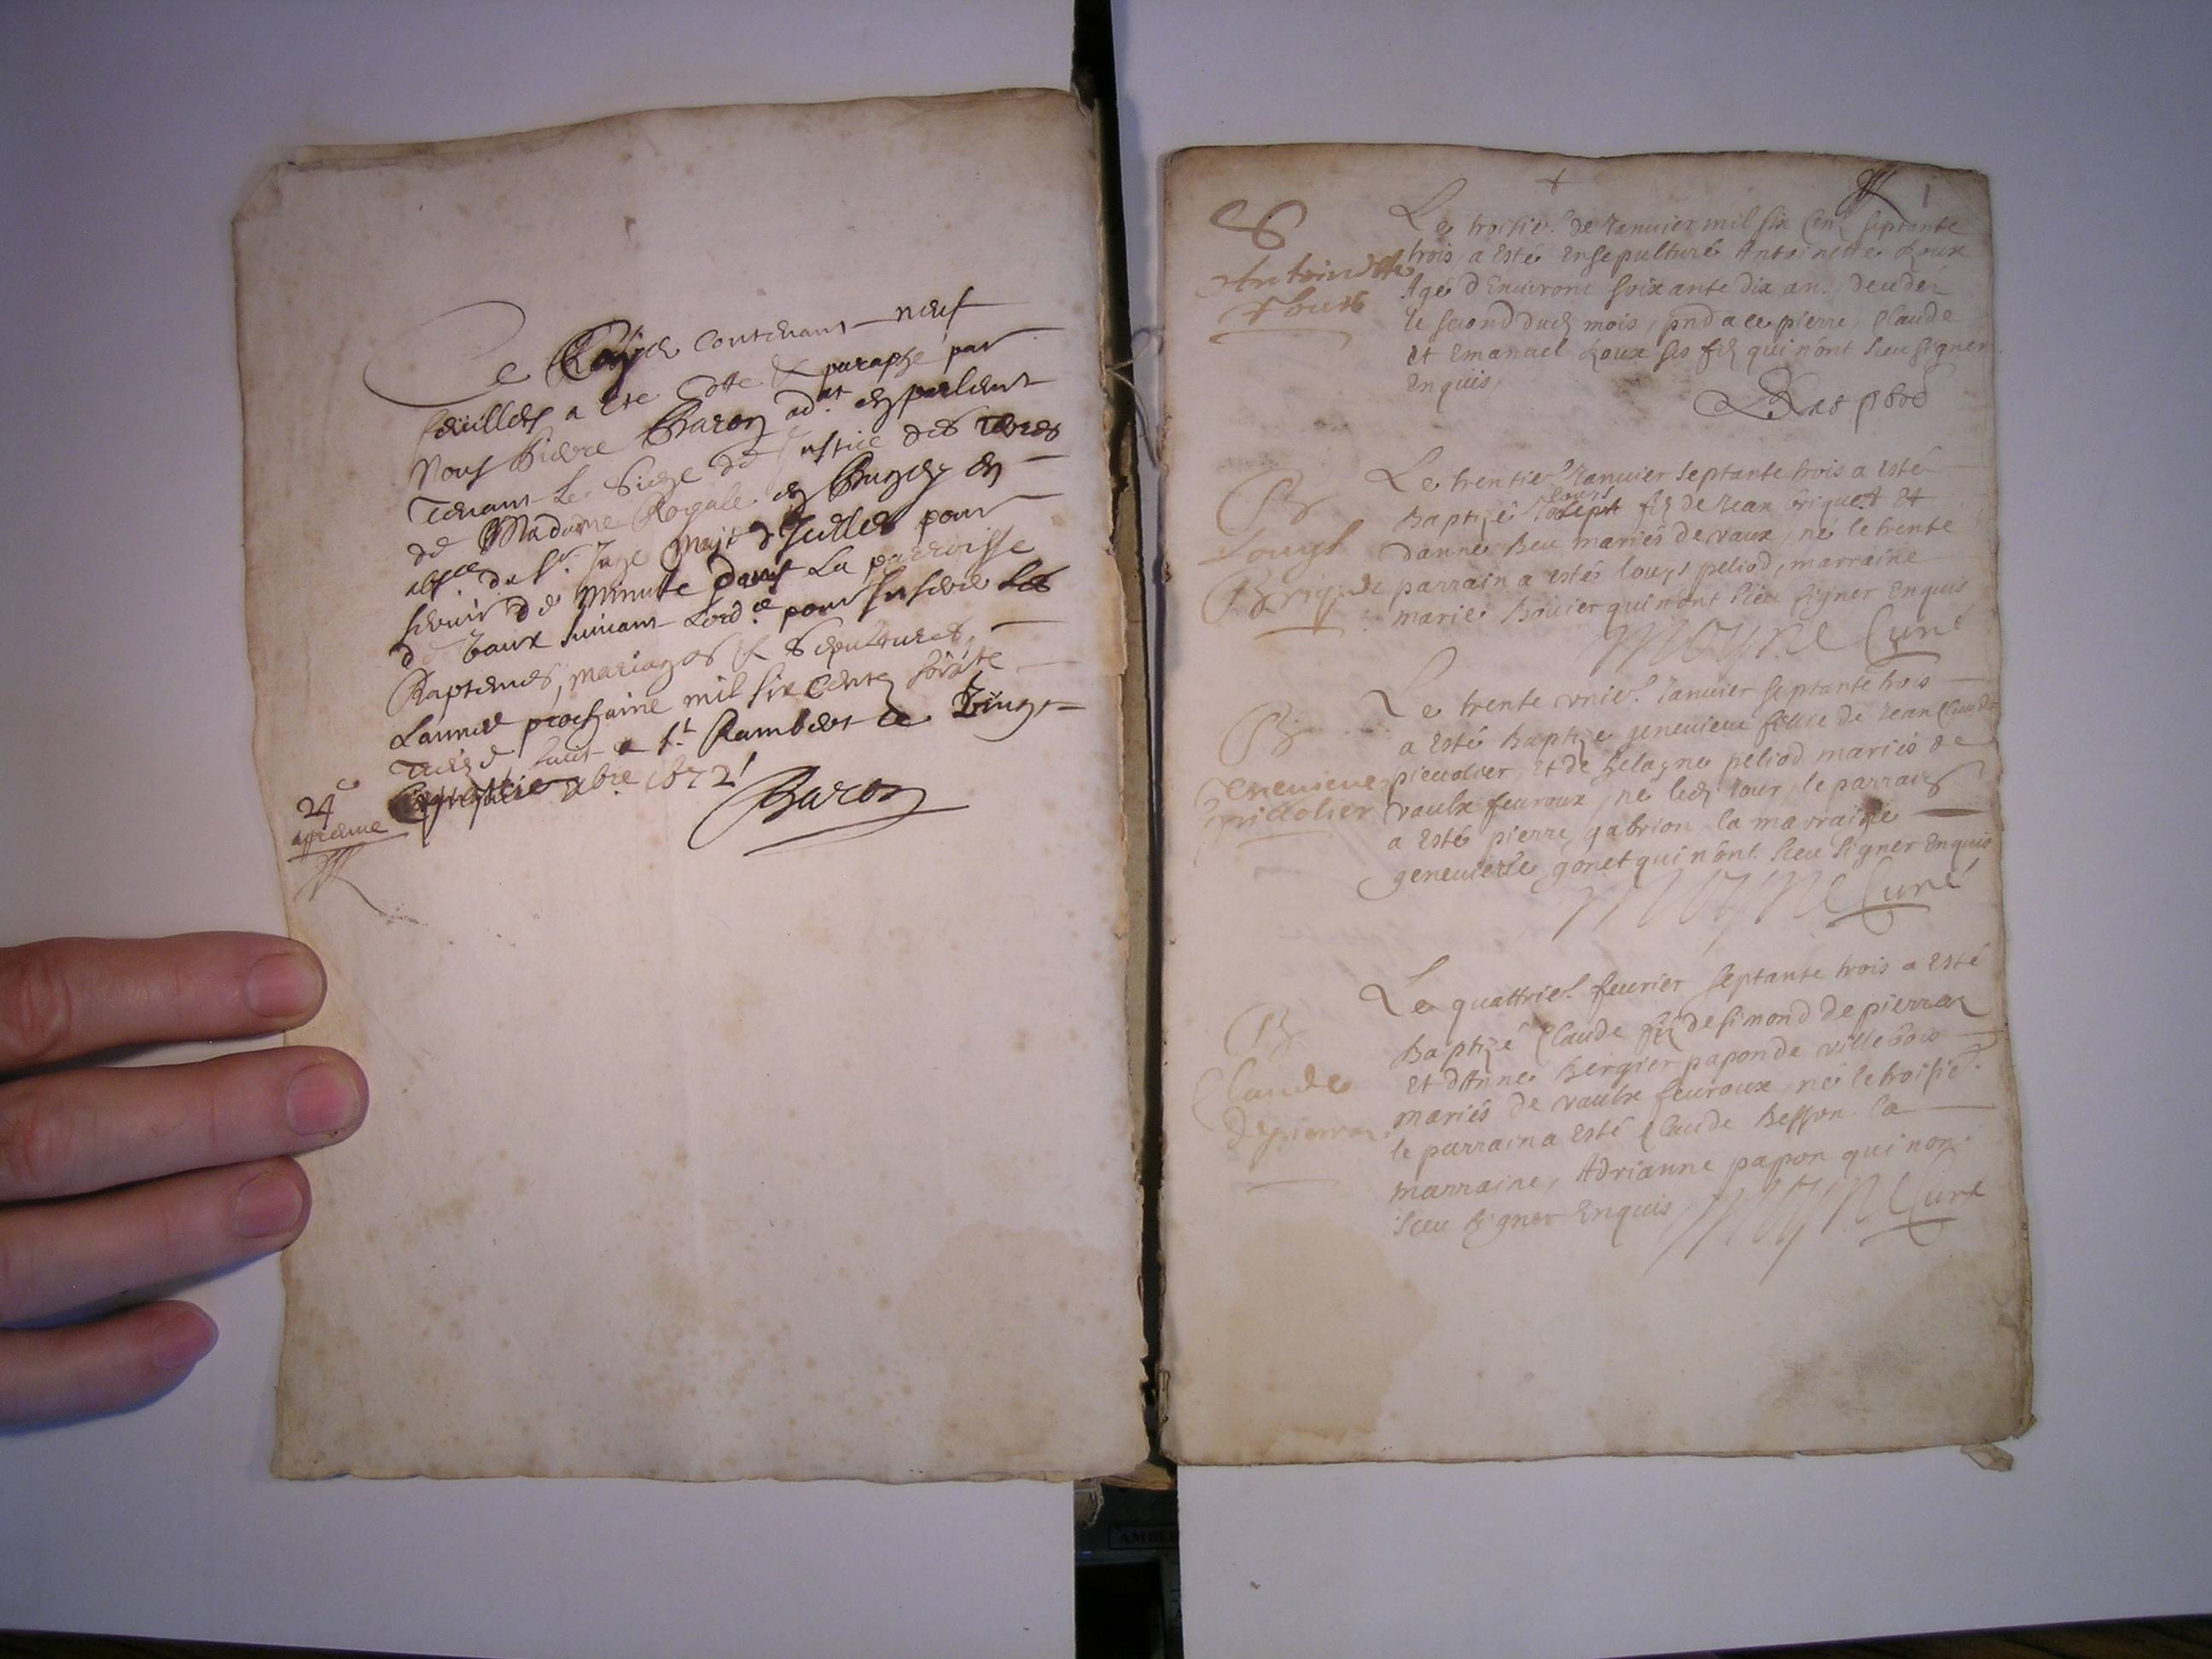 Ce Cayer contenant neuf
feuilles a este cotte & paraphé par
Nous Pierre Baron ad.at en parlement
tenant le siege de Justice des terres
de Madame Royale en Bugey en
absce du Sr. Juge Maje d'icelles pour
servir de minute dans la parroisse
de Vaux suivant l'ord.e pour Inserer les
Baptemes, mariages & sepultures,
L'année prochaine mil six cents septante
trois, fait a St Rambert ce vingt
xbre 1672
24e
approuve
Baron
1
S
Antoinette
Roux
Le troisie.e de Ianuier mil six cent septante
trois a esté ensepulturé Antoinette Roux
Agé d'Enuiron soixante dix ans decedée
le second dud mois, pnd a ce pierre, Claude
et Emanuel Roux ses fiz qui n'ont sceu signer
enquis,
B
Louys
Brig
Le trentie.e Ianuier septante trois a esté
louys
Baptizé Ioseph fiz de Iean Briquet et
d'anne Beu mariés de vaux, né le trente
le parrain a estés louys peliod, marraine
marie Bouier qui n'ont sceu signer enquis
Moyne Curé
B
Geneuieue
pieuolier
Le trente vnie.e Ianuier septante trois
a esté Baptizé geneuieue fillie de Iean Claude
pieuolier, et de pelagne peliod mariés de
vaulx feuroux, né led iour, le parrain
a esté pierre gabrion, la marraine
geneuieue gonet qui n'ont sceu signer enquis
Moyne Curé
B
Claude
depierraz
Le quattrie.e feurier septante trois a esté
Baptizé Claude fiz de simond depierraz
et d'Anne Bergier papon de villebois
mariés de vaulx feuroux, né le troisie.
le parrain a esté Claude Besson la
marraine, Adrianne papon qui non
sceu signer enquis
Moyne Curé